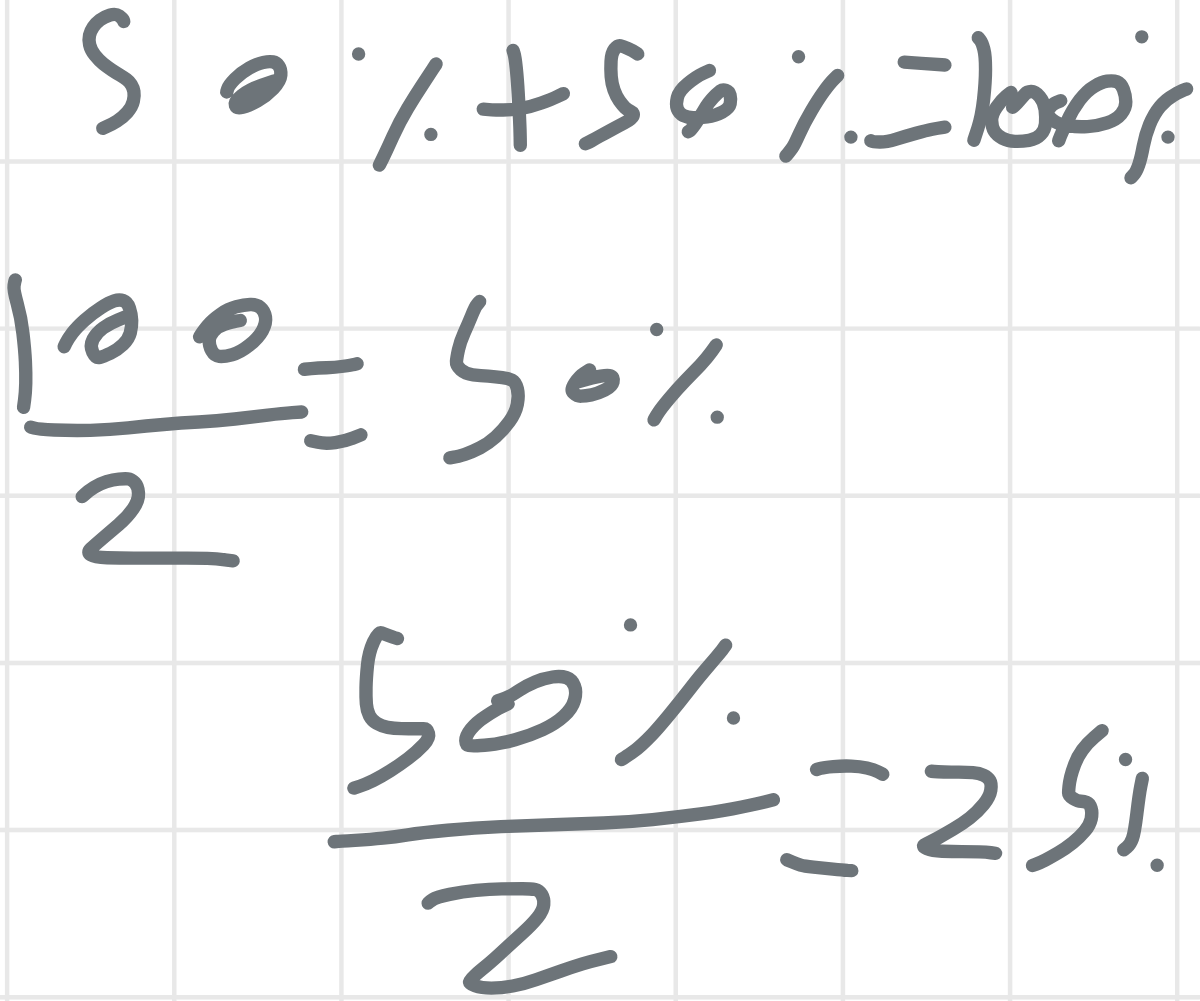 50%+50%=100%
100/2=50%
50%/2=25%